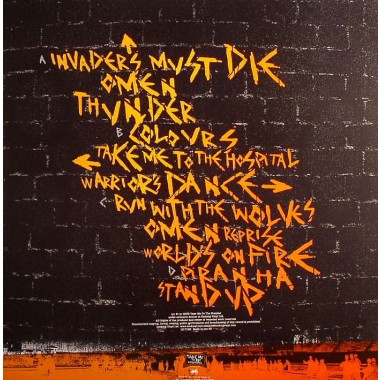 A INVADERS MUST DIE
OMEN
THUNDER
B COLOURS
TAKE ME TO THE HOSPITAL
WARRIOR'S DANCE
C RUN WITH THE WOLVES
OMEN REPRISE
WORLD'S ON FIRE
D PIRANHA
STAND UP